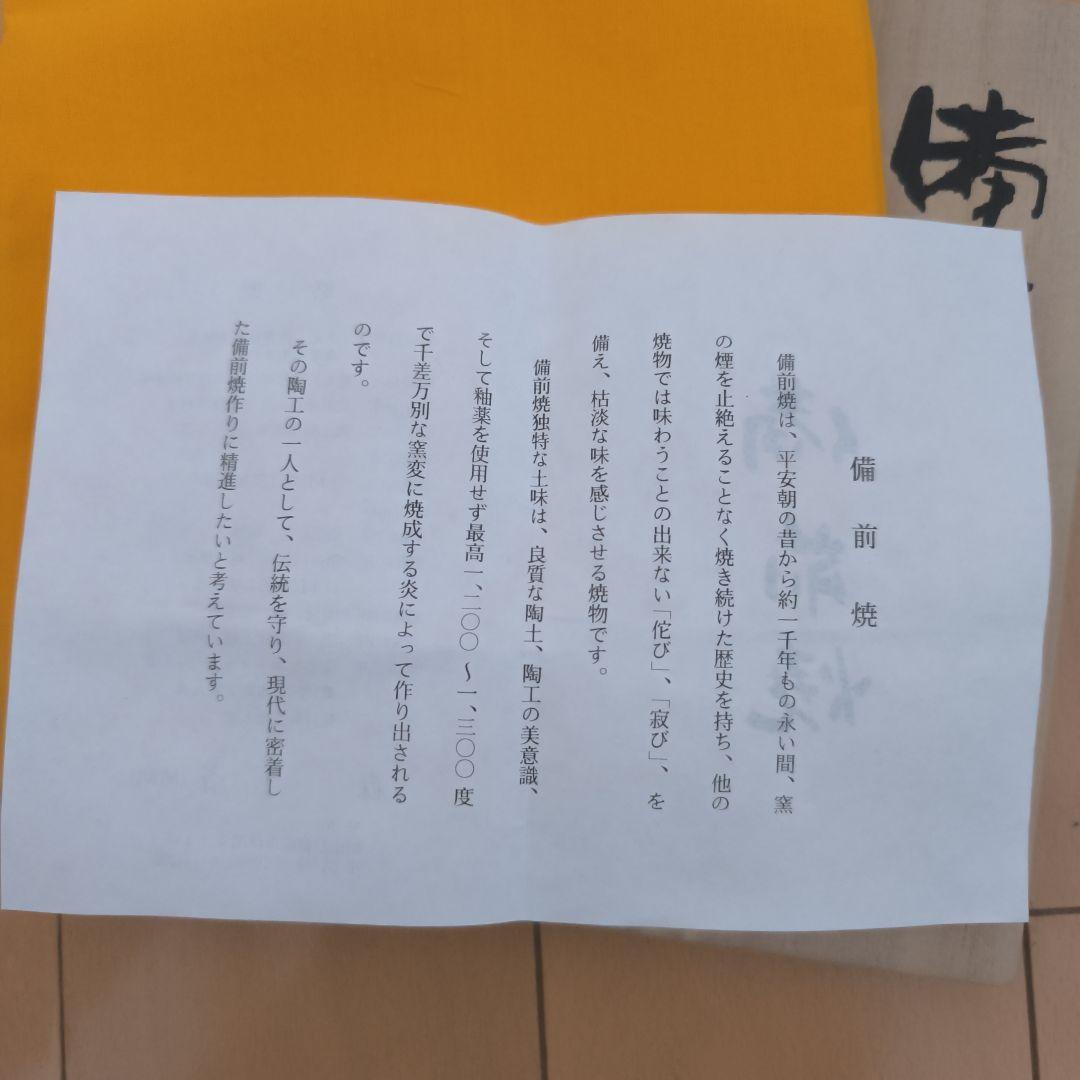 備
備前焼
備前焼は、平安朝の昔から約一千年もの永い間、窯
の煙を止絶えることなく焼き続けた歴史を持ち、他の
焼物では味わうことの出来ない「侘び」、「寂び」、を
備え、枯淡な味を感じさせる焼物です。
備前焼独特な土味は、良質な陶土、陶工の美意識、
そして釉薬を使用せず最高一、二〇〇～一、三〇〇度
で千差万別な窯変に焼成する炎によって作り出される
のです。
その陶工の一人として、伝統を守り、現代に密着し
た備前焼作りに精進したいと考えています。